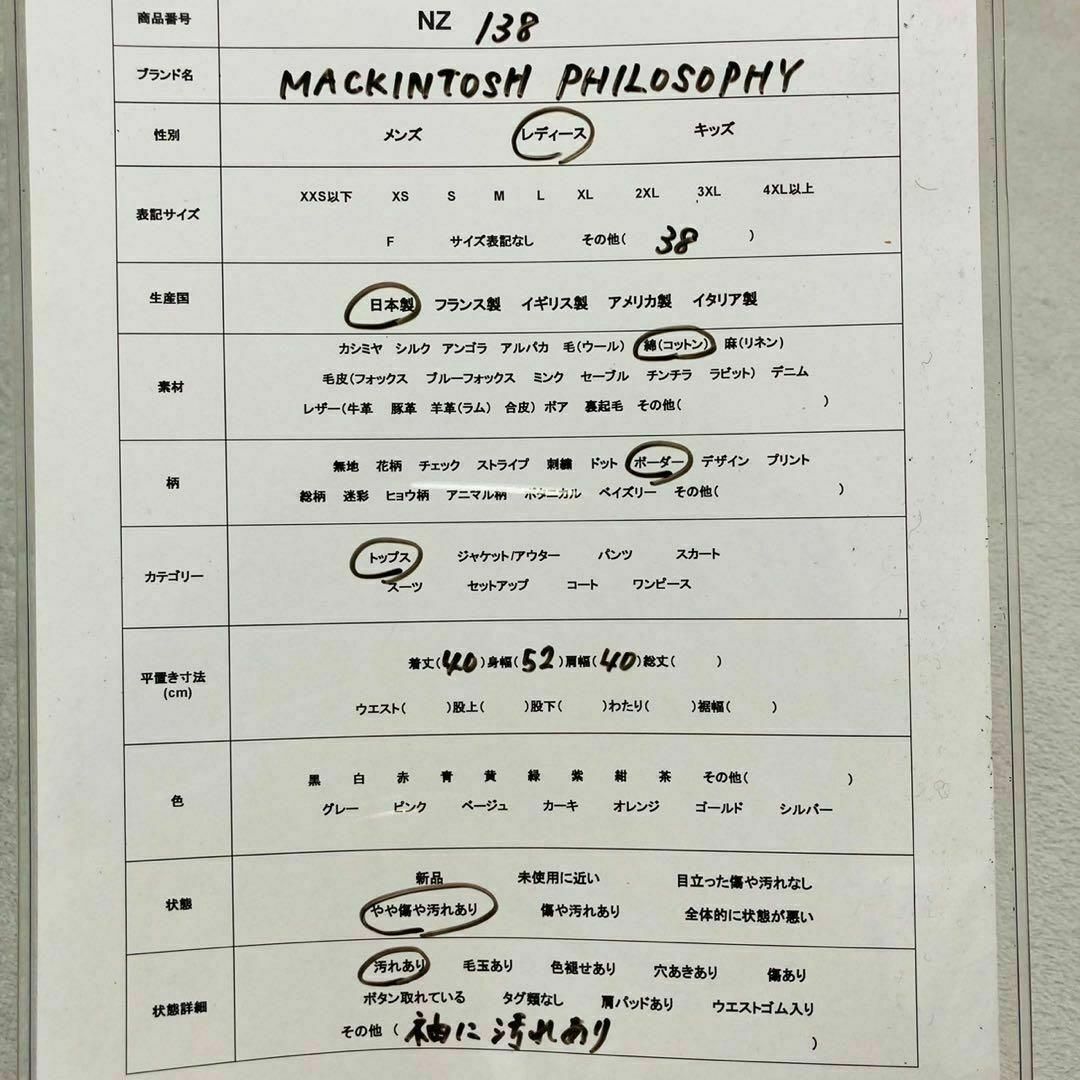 商品番号 NZ 138
ブランド名 MACKINTOSH PHILOSOPHY
性別 メンズ レディース キッズ
表記サイズ
XXS以下 XS S M L XL 2XL 3XL 4XL以上
F サイズ表記なし その他( 38 )
生産国 日本製 フランス製 イギリス製 アメリカ製 イタリア製
素材
カシミヤ シルク アンゴラ アルパカ 毛(ウール) 綿(コットン) 麻(リネン)
毛皮(フォックス ブルーフォックス ミンク セーブル チンチラ ラビット) デニム
レザー(牛革 豚革 羊革(ラム) 合皮) ボア 裏起毛 その他( )
柄
無地 花柄 チェック ストライプ 刺繍 ドット ボーダー デザイン プリント
総柄 迷彩 ヒョウ柄 アニマル柄 ボタニカル ペイズリー その他( )
カテゴリー
トップス ジャケット/アウター パンツ スカート
スーツ セットアップ コート ワンピース
平置き寸法
(cm)
着丈(40)身幅(52)肩幅(40)総丈( )
ウエスト( )股上( )股下( )わたり( )裾幅( )
色
黒 白 赤 青 黄 緑 紫 紺 茶 その他( )
グレー ピンク ベージュ カーキ オレンジ ゴールド シルバー
状態
新品 未使用に近い 目立った傷や汚れなし
やや傷や汚れあり 傷や汚れあり 全体的に状態が悪い
状態詳細
汚れあり 毛玉あり 色褪せあり 穴あきあり 傷あり
ボタン取れている タグ類なし 肩パッドあり ウエストゴム入り
その他 ( 袖に汚れあり )